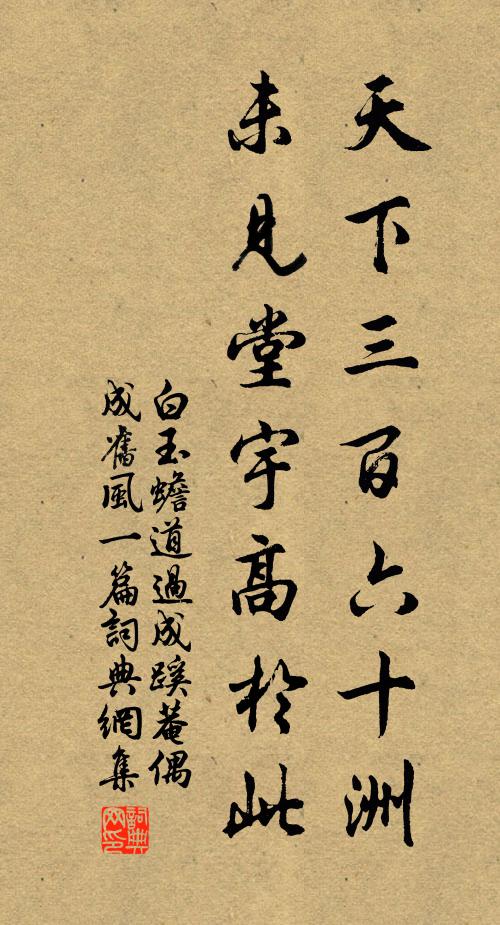 天下三百六十洲
未見堂宇高於此
白玉蟾道過成蹊菴偶
成舊風一篇詞典網集
詞典網印